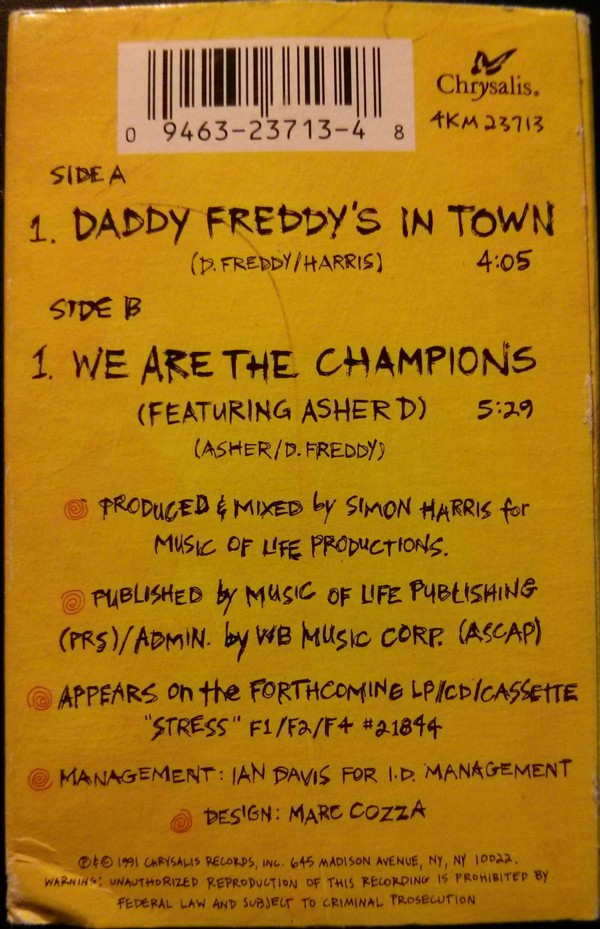 Chrysalis.
4KM 23713
0 9463-23713-4 8
SIDE A
1. DADDY FREDDY'S IN TOWN
(D. FREDDY/HARRIS) 4:05
SIDE B
1. WE ARE THE CHAMPIONS
(FEATURING ASHER D) 5:29
(ASHER/D. FREDDY)
PRODUCED & MIXED by SIMON HARRIS for
MUSIC OF LIFE PRODUCTIONS.
PUBLISHED by MUSIC OF LIFE PUBLISHING
(PRS)/ADMIN. by WB MUSIC CORP. (ASCAP)
APPEARS on the FORTHCOMING LP/CD/CASSETTE
"STRESS" F1/F2/F4 #21844
MANAGEMENT: IAN DAVIS FOR I.D. MANAGEMENT
DESIGN: MARC COZZA
℗&© 1991 CHRYSALIS RECORDS, INC. 645 MADISON AVENUE, NY, NY 10022.
WARNING: UNAUTHORIZED REPRODUCTION OF THIS RECORDING IS PROHIBITED BY
FEDERAL LAW AND SUBJECT TO CRIMINAL PROSECUTION